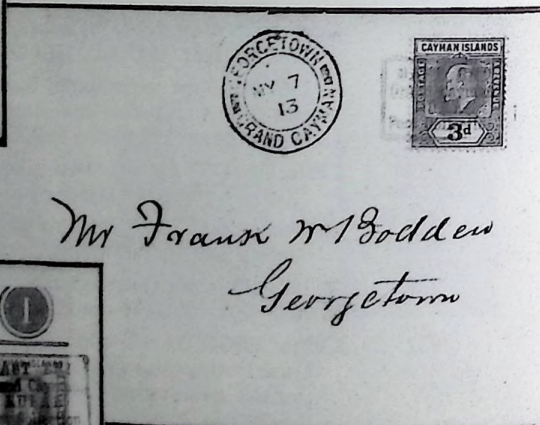 GEORGETOWN
GRAND CAYMAN
MY 7
13
CAYMAN ISLANDS
POSTAGE
3d
Mr Frank W Bodden
Georgetown
1